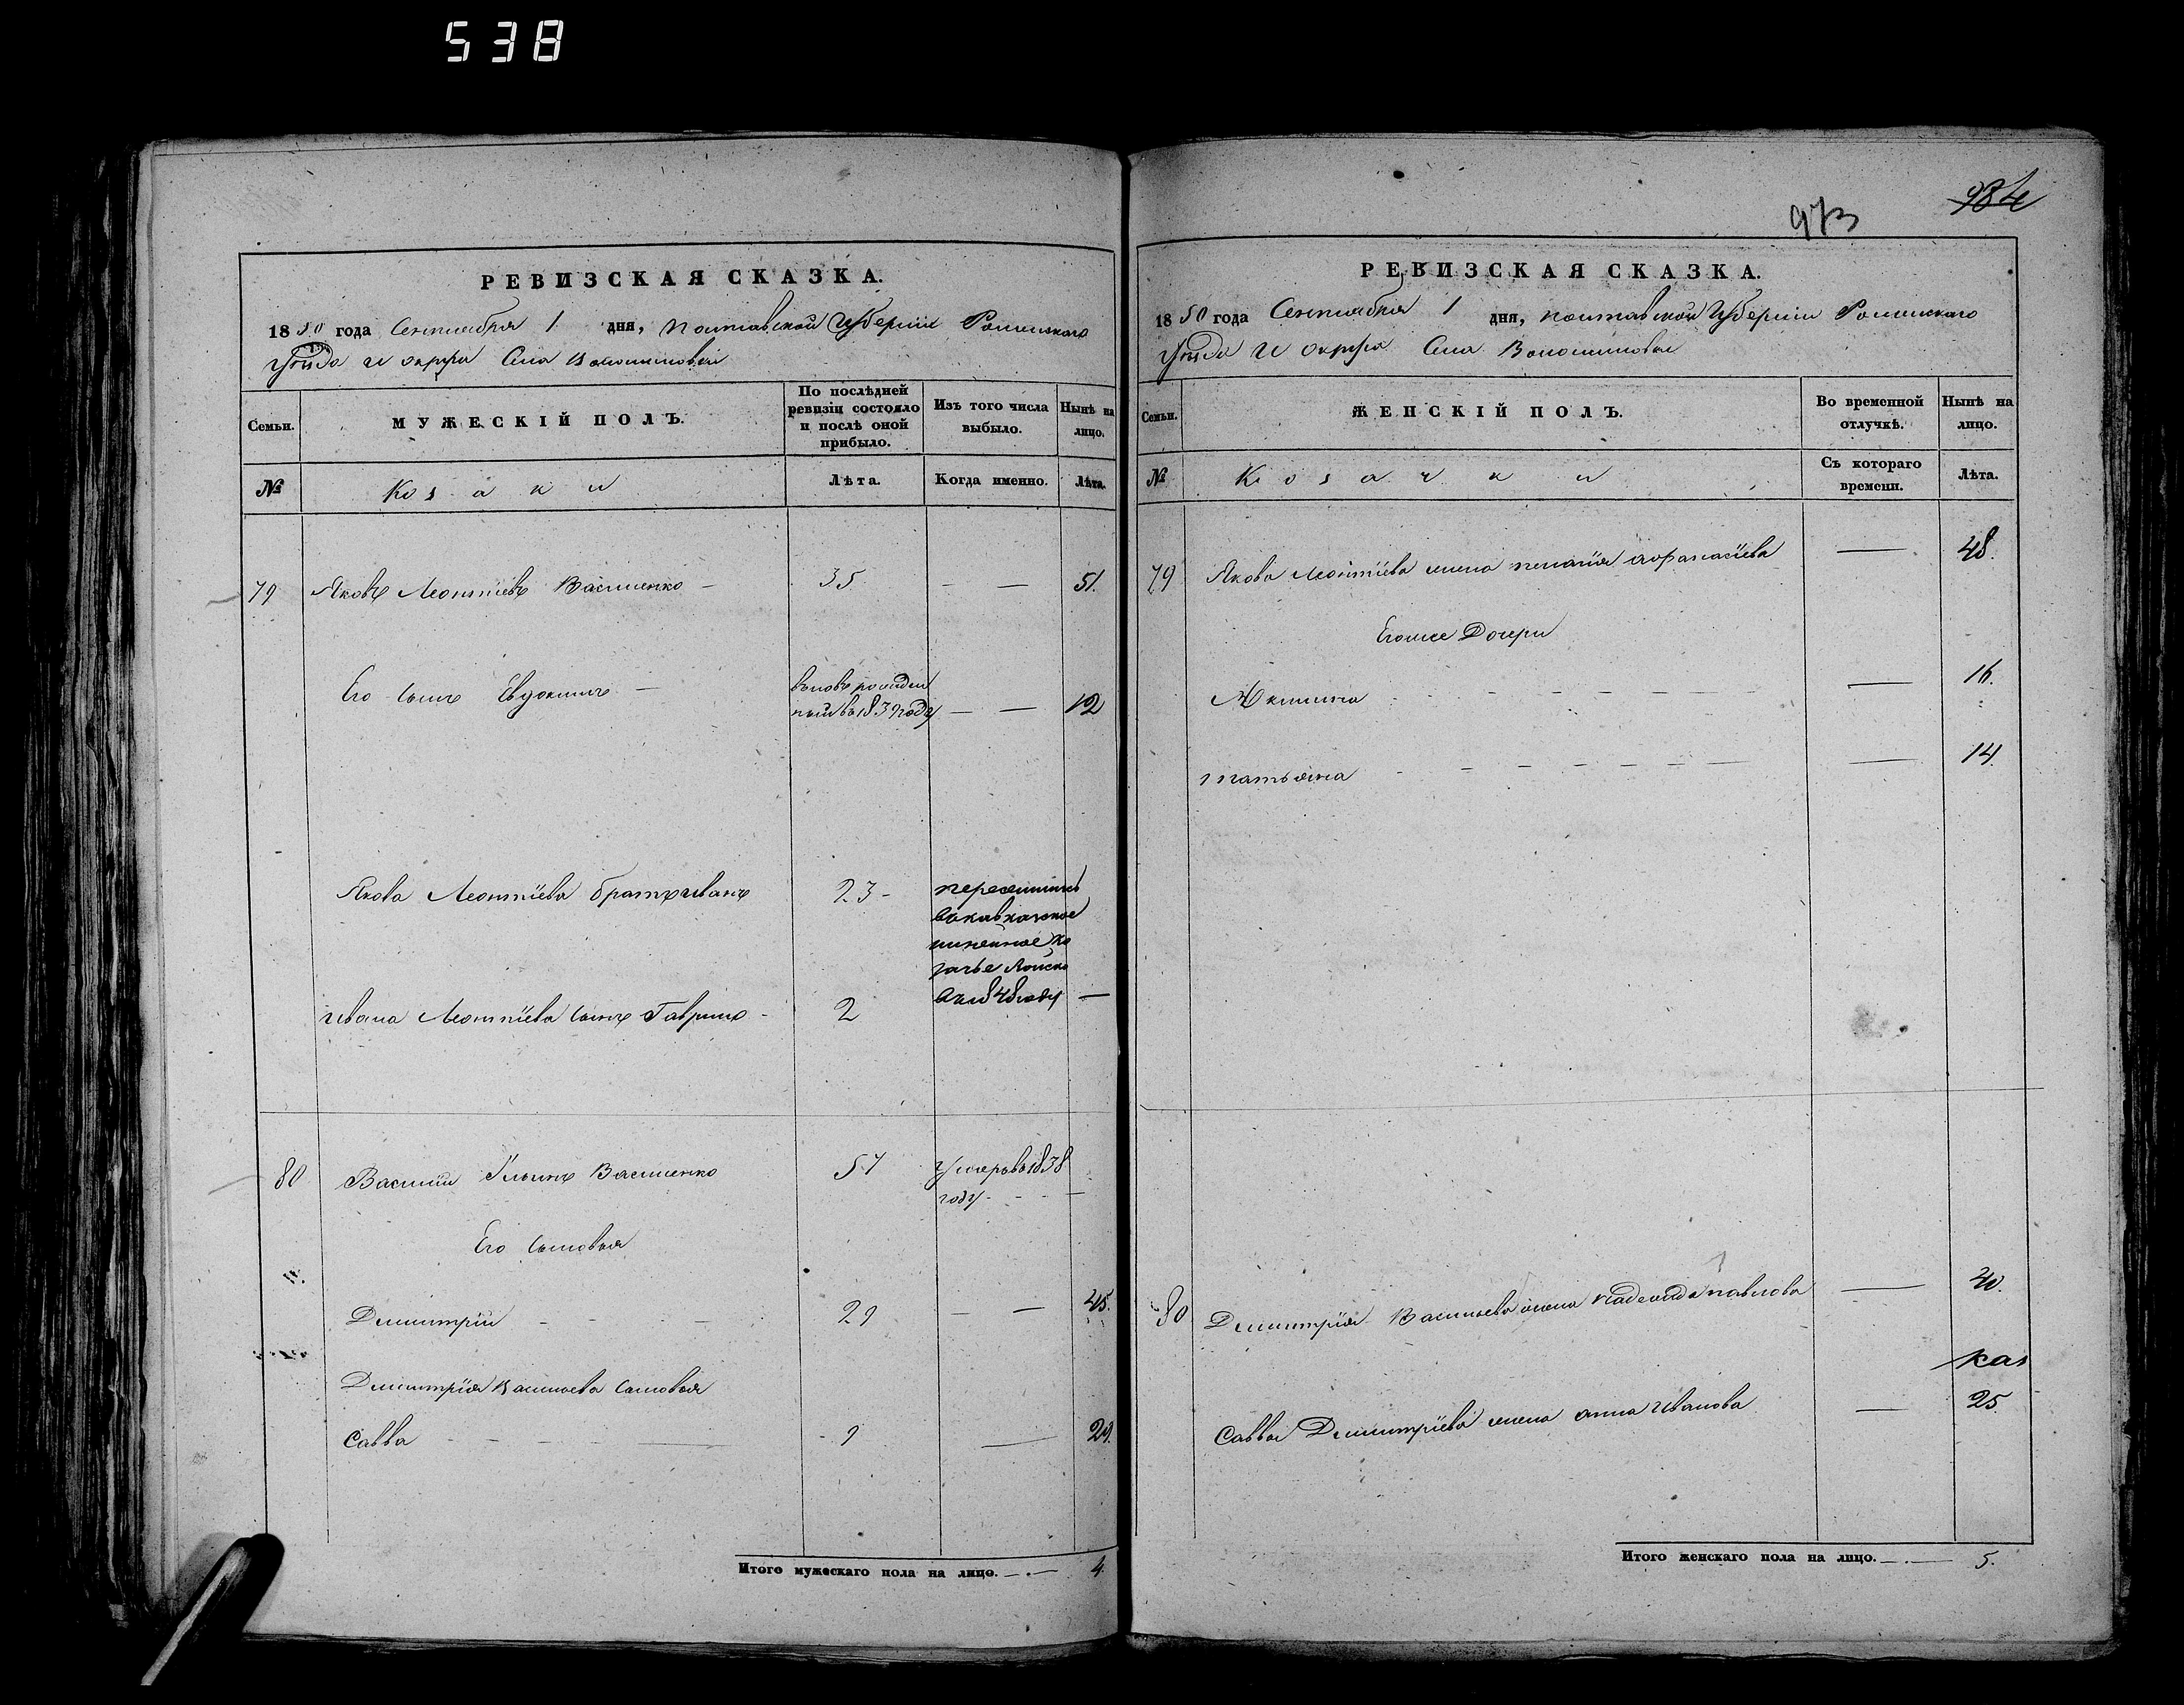 538
973
984
РЕВИЗСКАЯ СКАЗКА.
1850 года Сентября 1 дня, полтавской Губернии Роменскаго
Уѣзда и округа Села Волошиновки
Семьи.
МУЖЕСКІЙ ПОЛЪ.
По послѣдней ревизіи состояло и послѣ оной прибыло.
Изъ того числа выбыло.
Нынѣ на лицо.
№
Козаки
Лѣта.
Когда именно.
Лѣта.
79 Яковъ Леонтіевъ Василенко — 35 — — 51.
Его сынъ Евдокимъ —
вновь рожден
ный въ 1839 году — — 12
Якова Леонтіева братъ иванъ 23 -
переселились
вкавказское
линейное ко
зачье Войско
въ 1848 году —
ивана Леонтіева сынъ Гаврило - 2
80 Василий Ильинъ Василенко 57 Умеръ въ 1838
году - - - —
Его сыновья
Димитрій - - - - 29 — — 45.
Димитрія Васильева сыновья
Савва - - - - — 9 — 24.
Итого мужескаго пола на лицо. — . — 4.
РЕВИЗСКАЯ СКАЗКА.
1850 года Сентября 1 дня, полтавской Губерніи Роменскаго
Уѣзда и округа Села Волошиновки
Семьи.
ЖЕНСКІЙ ПОЛЪ.
Во временной отлучкѣ.
Нынѣ на лицо.
№
Козачки
Съ котораго времени.
Лѣта.
79 Якова Леонтіева жена пелагія афанасіева — 48.
Егоже Дочери
Акилина — 16.
татьяна — 14.
80 Димитрія Васильева жена надежда павлова — 40.
25
Саввы Димитріева жена анна иванова —
Итого женскаго пола на лицо. — . — 5.